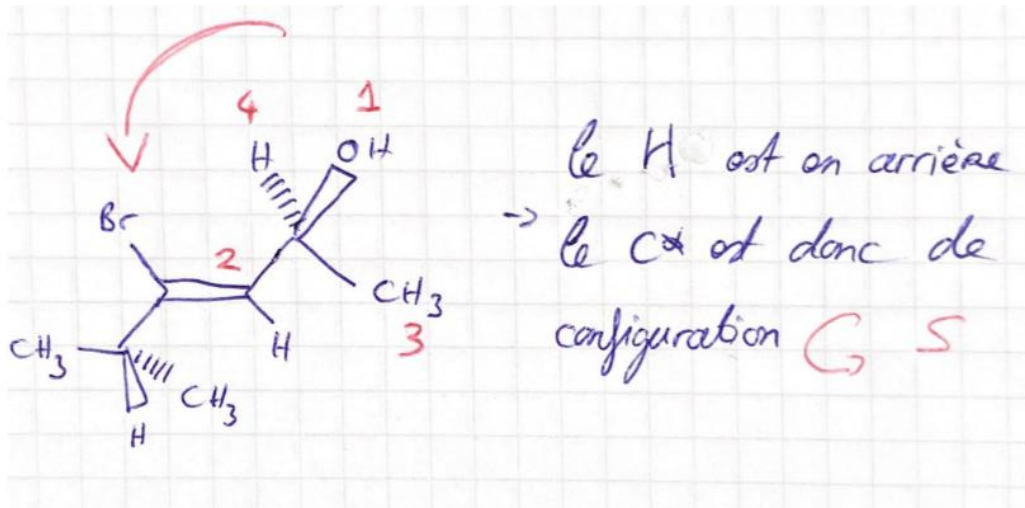 4 1
H OH
Br
2
CH3
CH3 H 3
CH3
H
le H est en arrière
-> le C* est donc de
configuration S